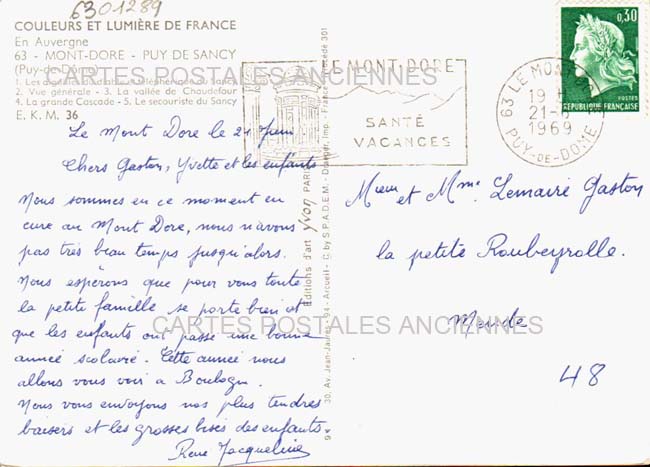 63 01289
COULEURS ET LUMIÈRE DE FRANCE
En Auvergne
63 - MONT-DORE - PUY DE SANCY
(Puy-de-Dôme)
2. Vue générale - 3. La vallée de Chaudefour
4. La grande Cascade - 5. Le secouriste du Sancy
E. K. M. 36
CARTES POSTALES ANCIENNES
LE MONT-DORE
SANTÉ
VACANCES
63 LE MONT-
19 H
21-6
1969
PUY-DE-DOME
0,30
POSTES
RÉPUBLIQUE FRANÇAISE
Le Mont Dore le 21 Juin
Chers Gaston, Yvette et les enfants
Nous sommes en ce moment en
cure au Mont Dore, nous n'avons
pas très beau temps jusqu'alors.
Nous espérons que pour vous toute
la petite famille se porte bien et
que les enfants ont passé une bonne
année scolaire. Cette année nous
allons vous voir à Boulogn.
Nous vous envoyons nos plus tendres
baisers et les grosses bises des enfants
Rene Jacqueline
Editions d'art yvon PARIS
30, Av. Jean-Jaurès - 94 - Arcueil - C. by S.P.A.D.E.M. - Draeger, Imp. - France - Façade 301
94
Mieur et Mme Lemaire Gaston
la petite Roubeyrolle.
Mende
48
CARTES POSTALES ANCIENNES